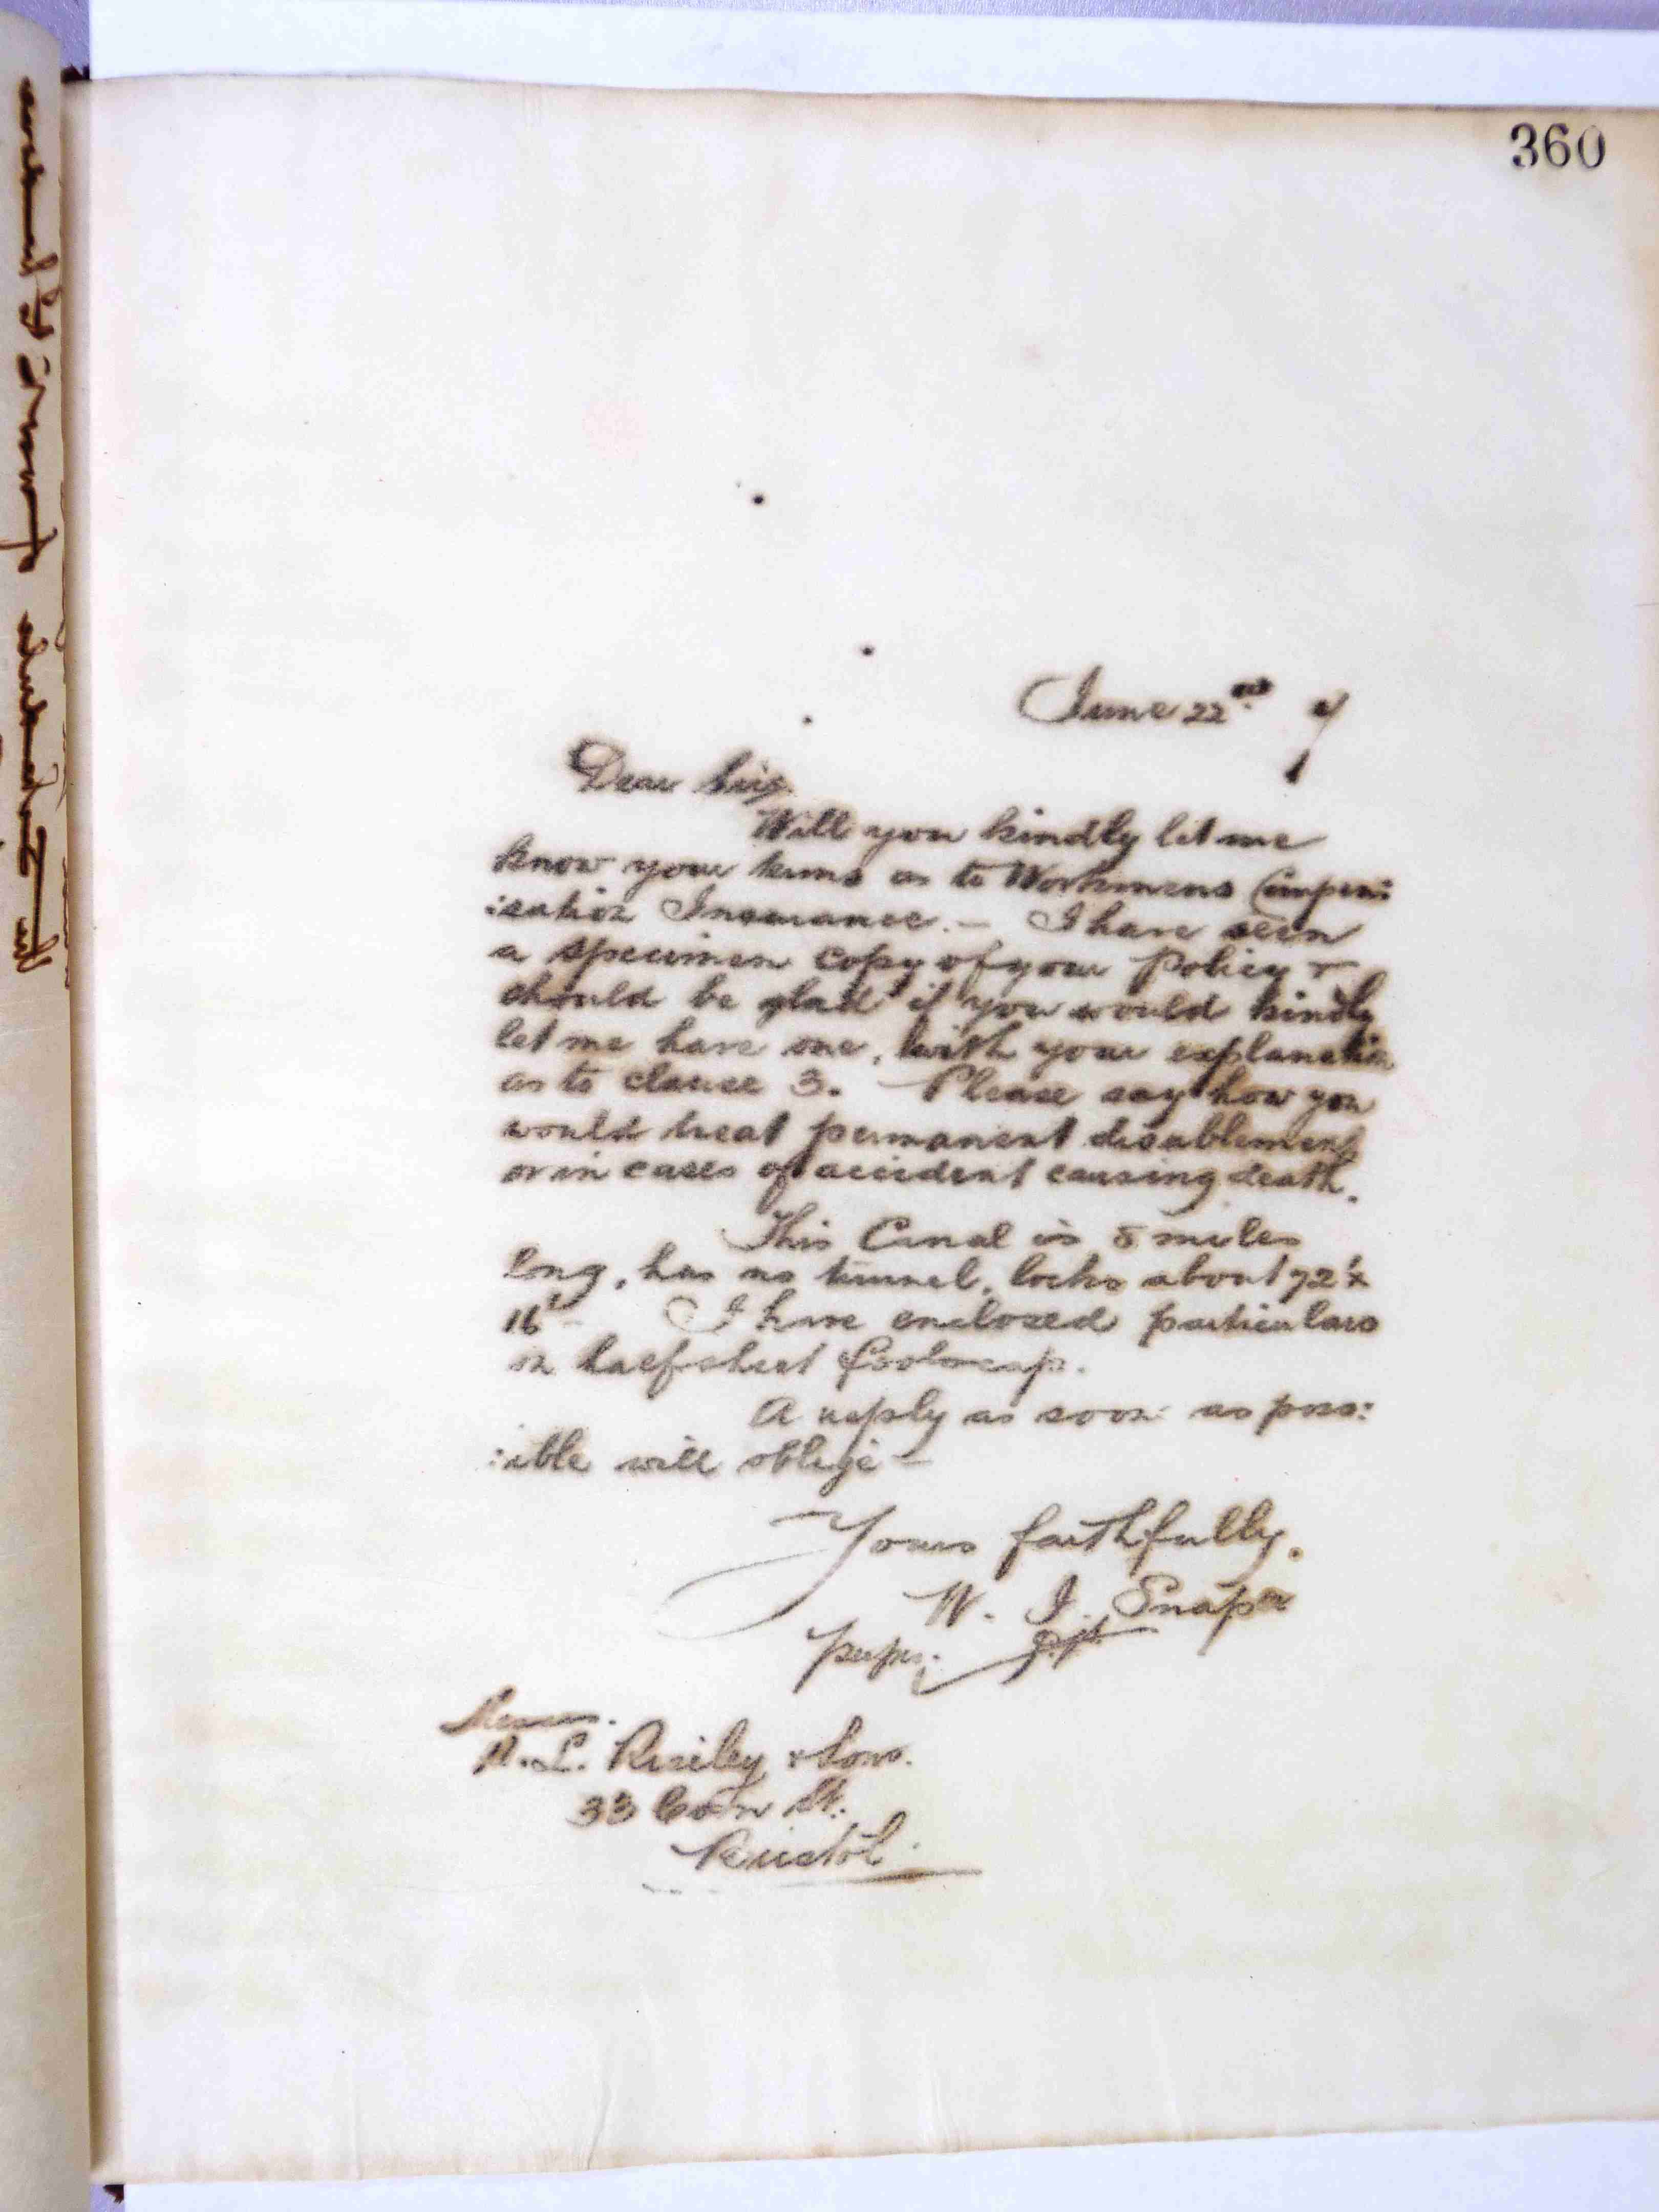 360
June 22nd 7
Dear Sirs
Will you kindly let me
know your terms as to Workmens Compen:
:sation Insurance. – I have seen
a specimen copy of your Policy &
should be glad if you would kindly
let me have one, with your explanation
as to clause 3. Please say how you
would treat permanent disablement
or in cases of accident causing death.
This Canal is 8 miles
long, has no tunnel, locks about 72' x
16' – I have enclosed particulars
on half sheet foolscap.
A reply as soon as poss:
:ible will oblige –
Yours faithfully,
W. J. Snape
per
Messrs.
L. Risiley & Sons.
33 Corn St.
Bristol.